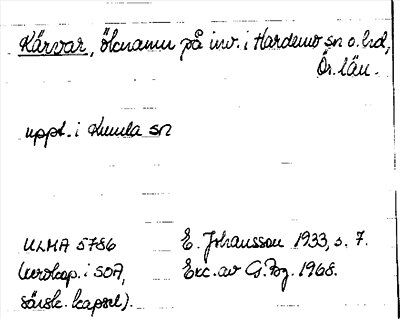 Kärvar, öknamn på inv. i Hardemo sn o. hd,
Ör. län.
uppt. i Kumla sn
ULMA 5786 E. Johansson 1933, s. 7.
(urokop. i SOA, Exc. av G. Bg. 1968.
särsk. kapsel).